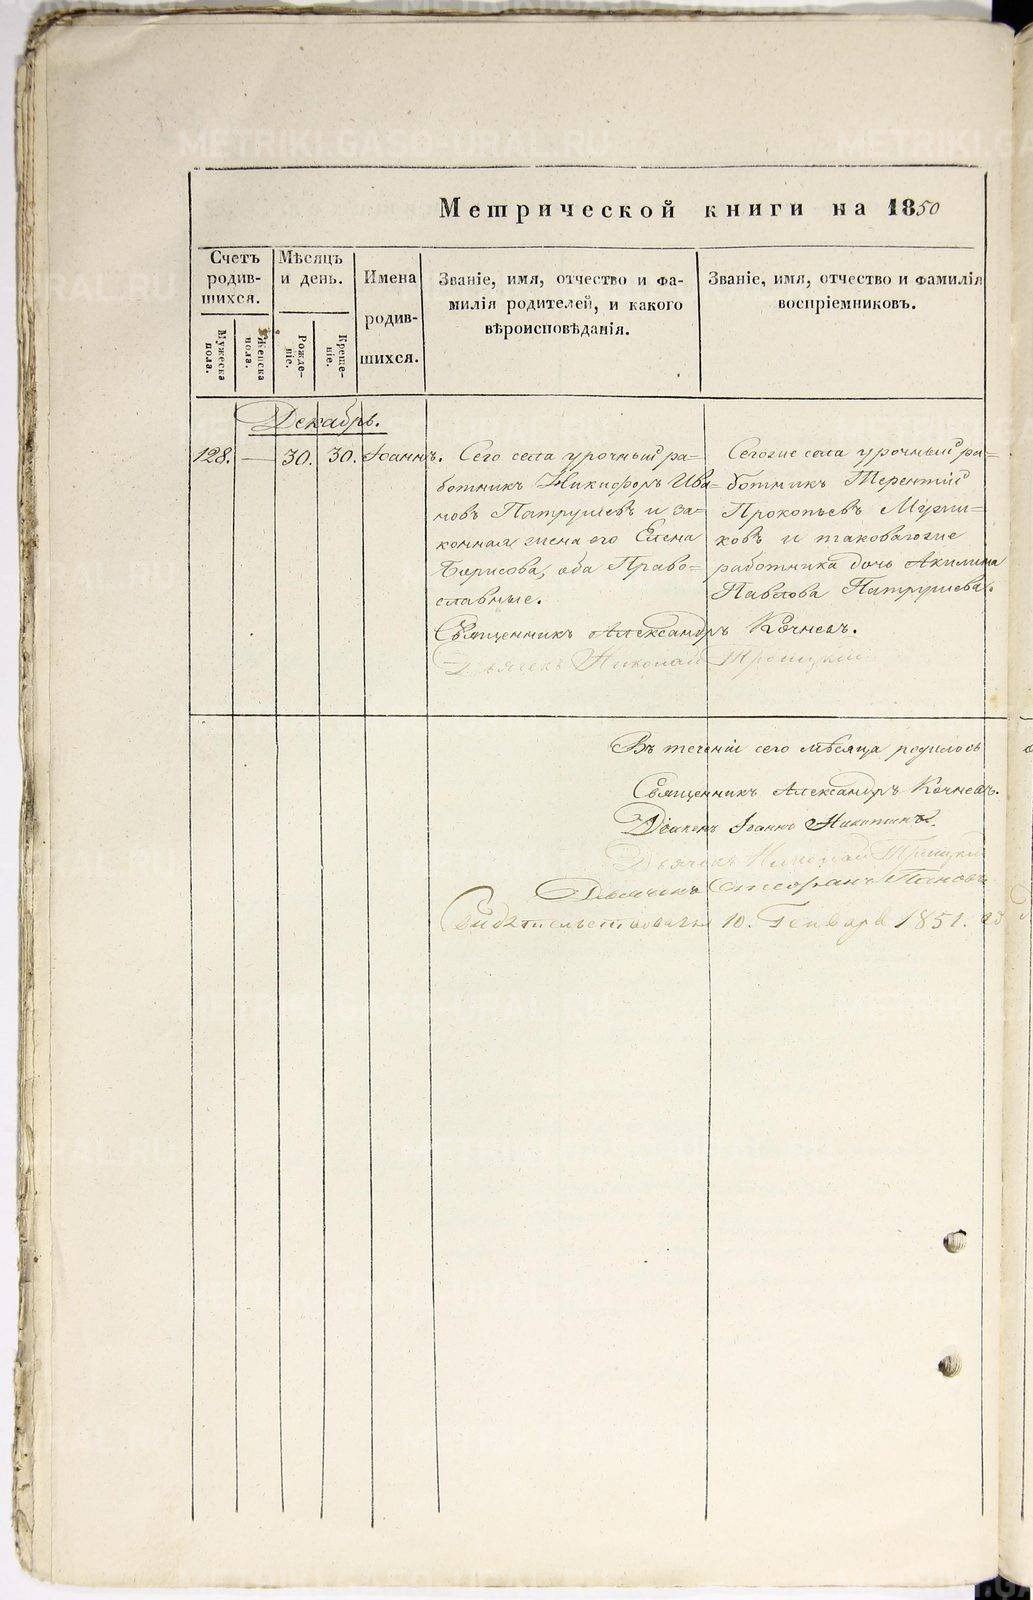 Метрической книги на 1850
Счетъ родив-шихся.
Мѣсяцъ и день.
Имена родив-шихся.
Званіе, имя, отчество и фа-
милія родителей, и какого
вѣроисповѣданія.
Званіе, имя, отчество и фамилія
воспріемниковъ.
Мужеска пола.
Женска пола.
Рожде-ніе.
Креще-ніе.
Декабрь.
128. — 30. 30. Іоаннъ.
Сего села урочный ра-
ботникъ Никифоръ Ива-
новъ Патрушевъ и за-
конная жена его Елена
Борисова, оба Право-
славные.
Сегоже села урочный ра-
ботникъ Терентій
Прокопьевъ
ковъ и таковагоже
работника дочь Акилина
Павлова Патрушева.
Священникъ Александръ Кочневъ.
Дьячекъ Николай Троицкій
Въ теченіи сего мѣсяца родилось
Священникъ Александръ Кочневъ.
Діаконъ Іоаннъ Никитинъ.
Дьячекъ Николай Троицкій
Дьячикъ Стефанъ Пановъ
10. Генваря 1851.
METRIKI.GASO-URAL.RU